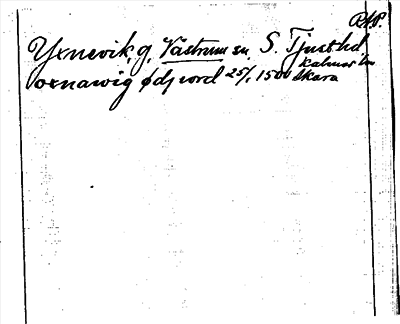 RAP.
Yxnevik, g, Västrum sn, S. Tjust hd
Kalmar län
oxnawig ödjord 25/1 1500 Skara